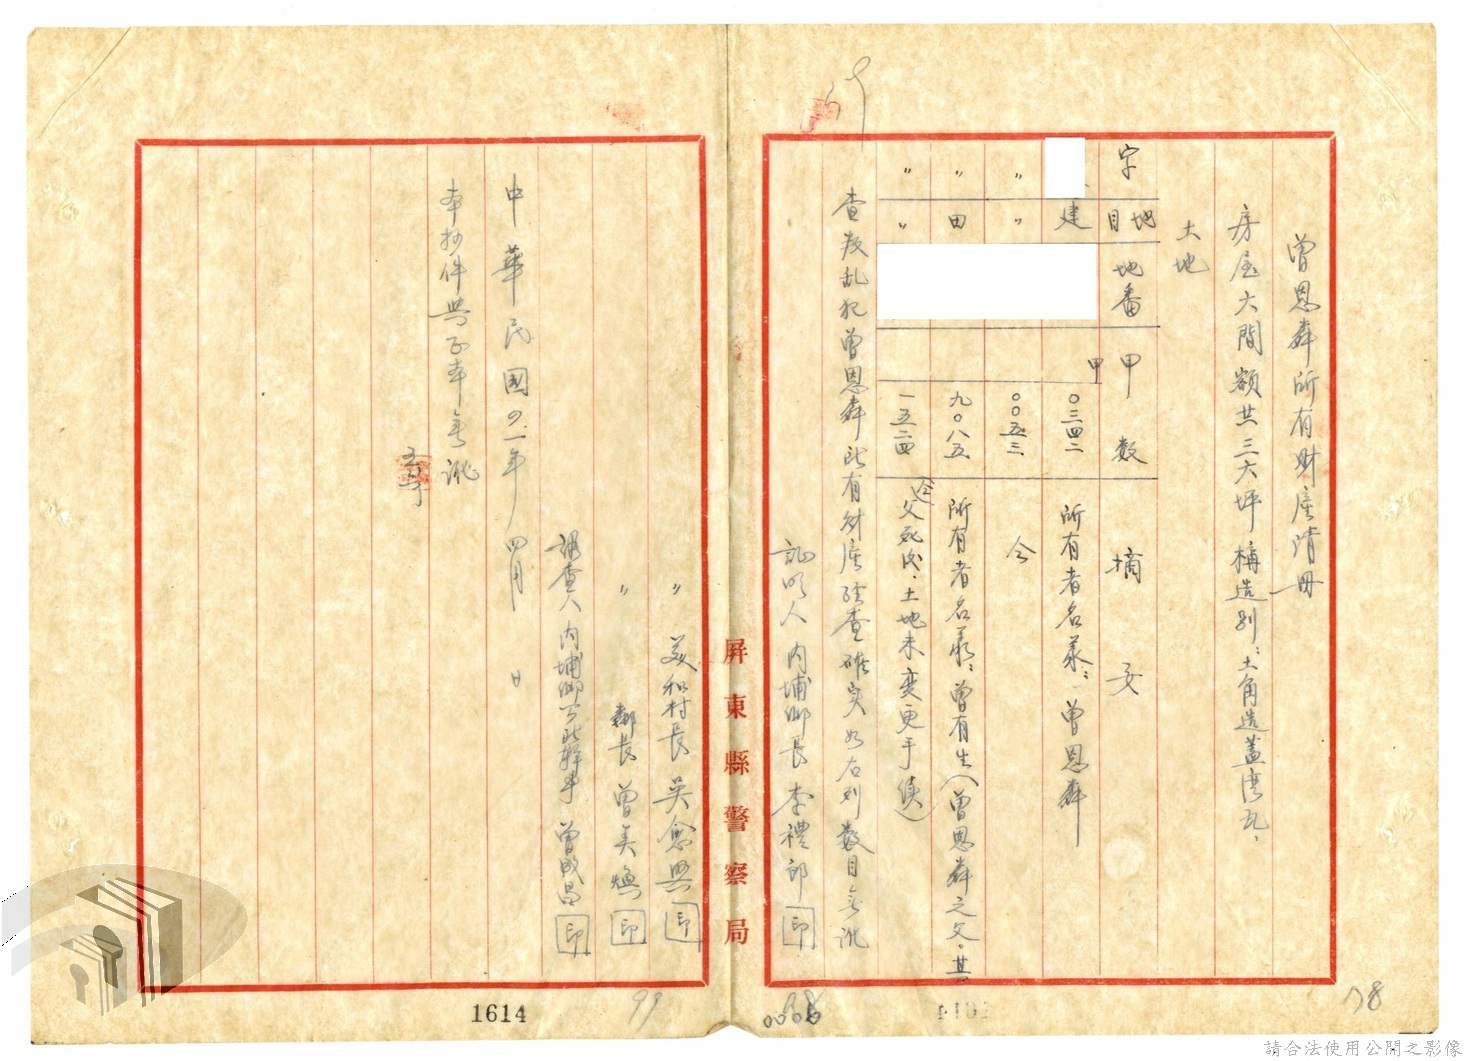 曾恩舜所有財産清冊
房屋大間額共三六坪構造別：土角造蓋湾瓦、
土地
字 地目 地番 甲数 摘要
建 甲 〇三四二 所有者名義：曾恩舜
〃 〃 〇〇五三 仝
〃 田 九〇八五 所有者名義：曾有生（曾恩舜之父、其
〃 〃 一五二四 父死没、土地未変更手续）
查叛乱犯曾恩舜所有財産経查確実如右列数目無訛
証明人 内埔鄉長 李禮郎 印
〃 美和村長 吳愈興 印
〃 鄰長 曾美煥 印
調查人 内埔鄉公所幹事 曾成昌 印
中華民國四一年四月 日
本抄件與正本無訛
屏東縣警察局
1614
99
98
請合法使用公開之影像